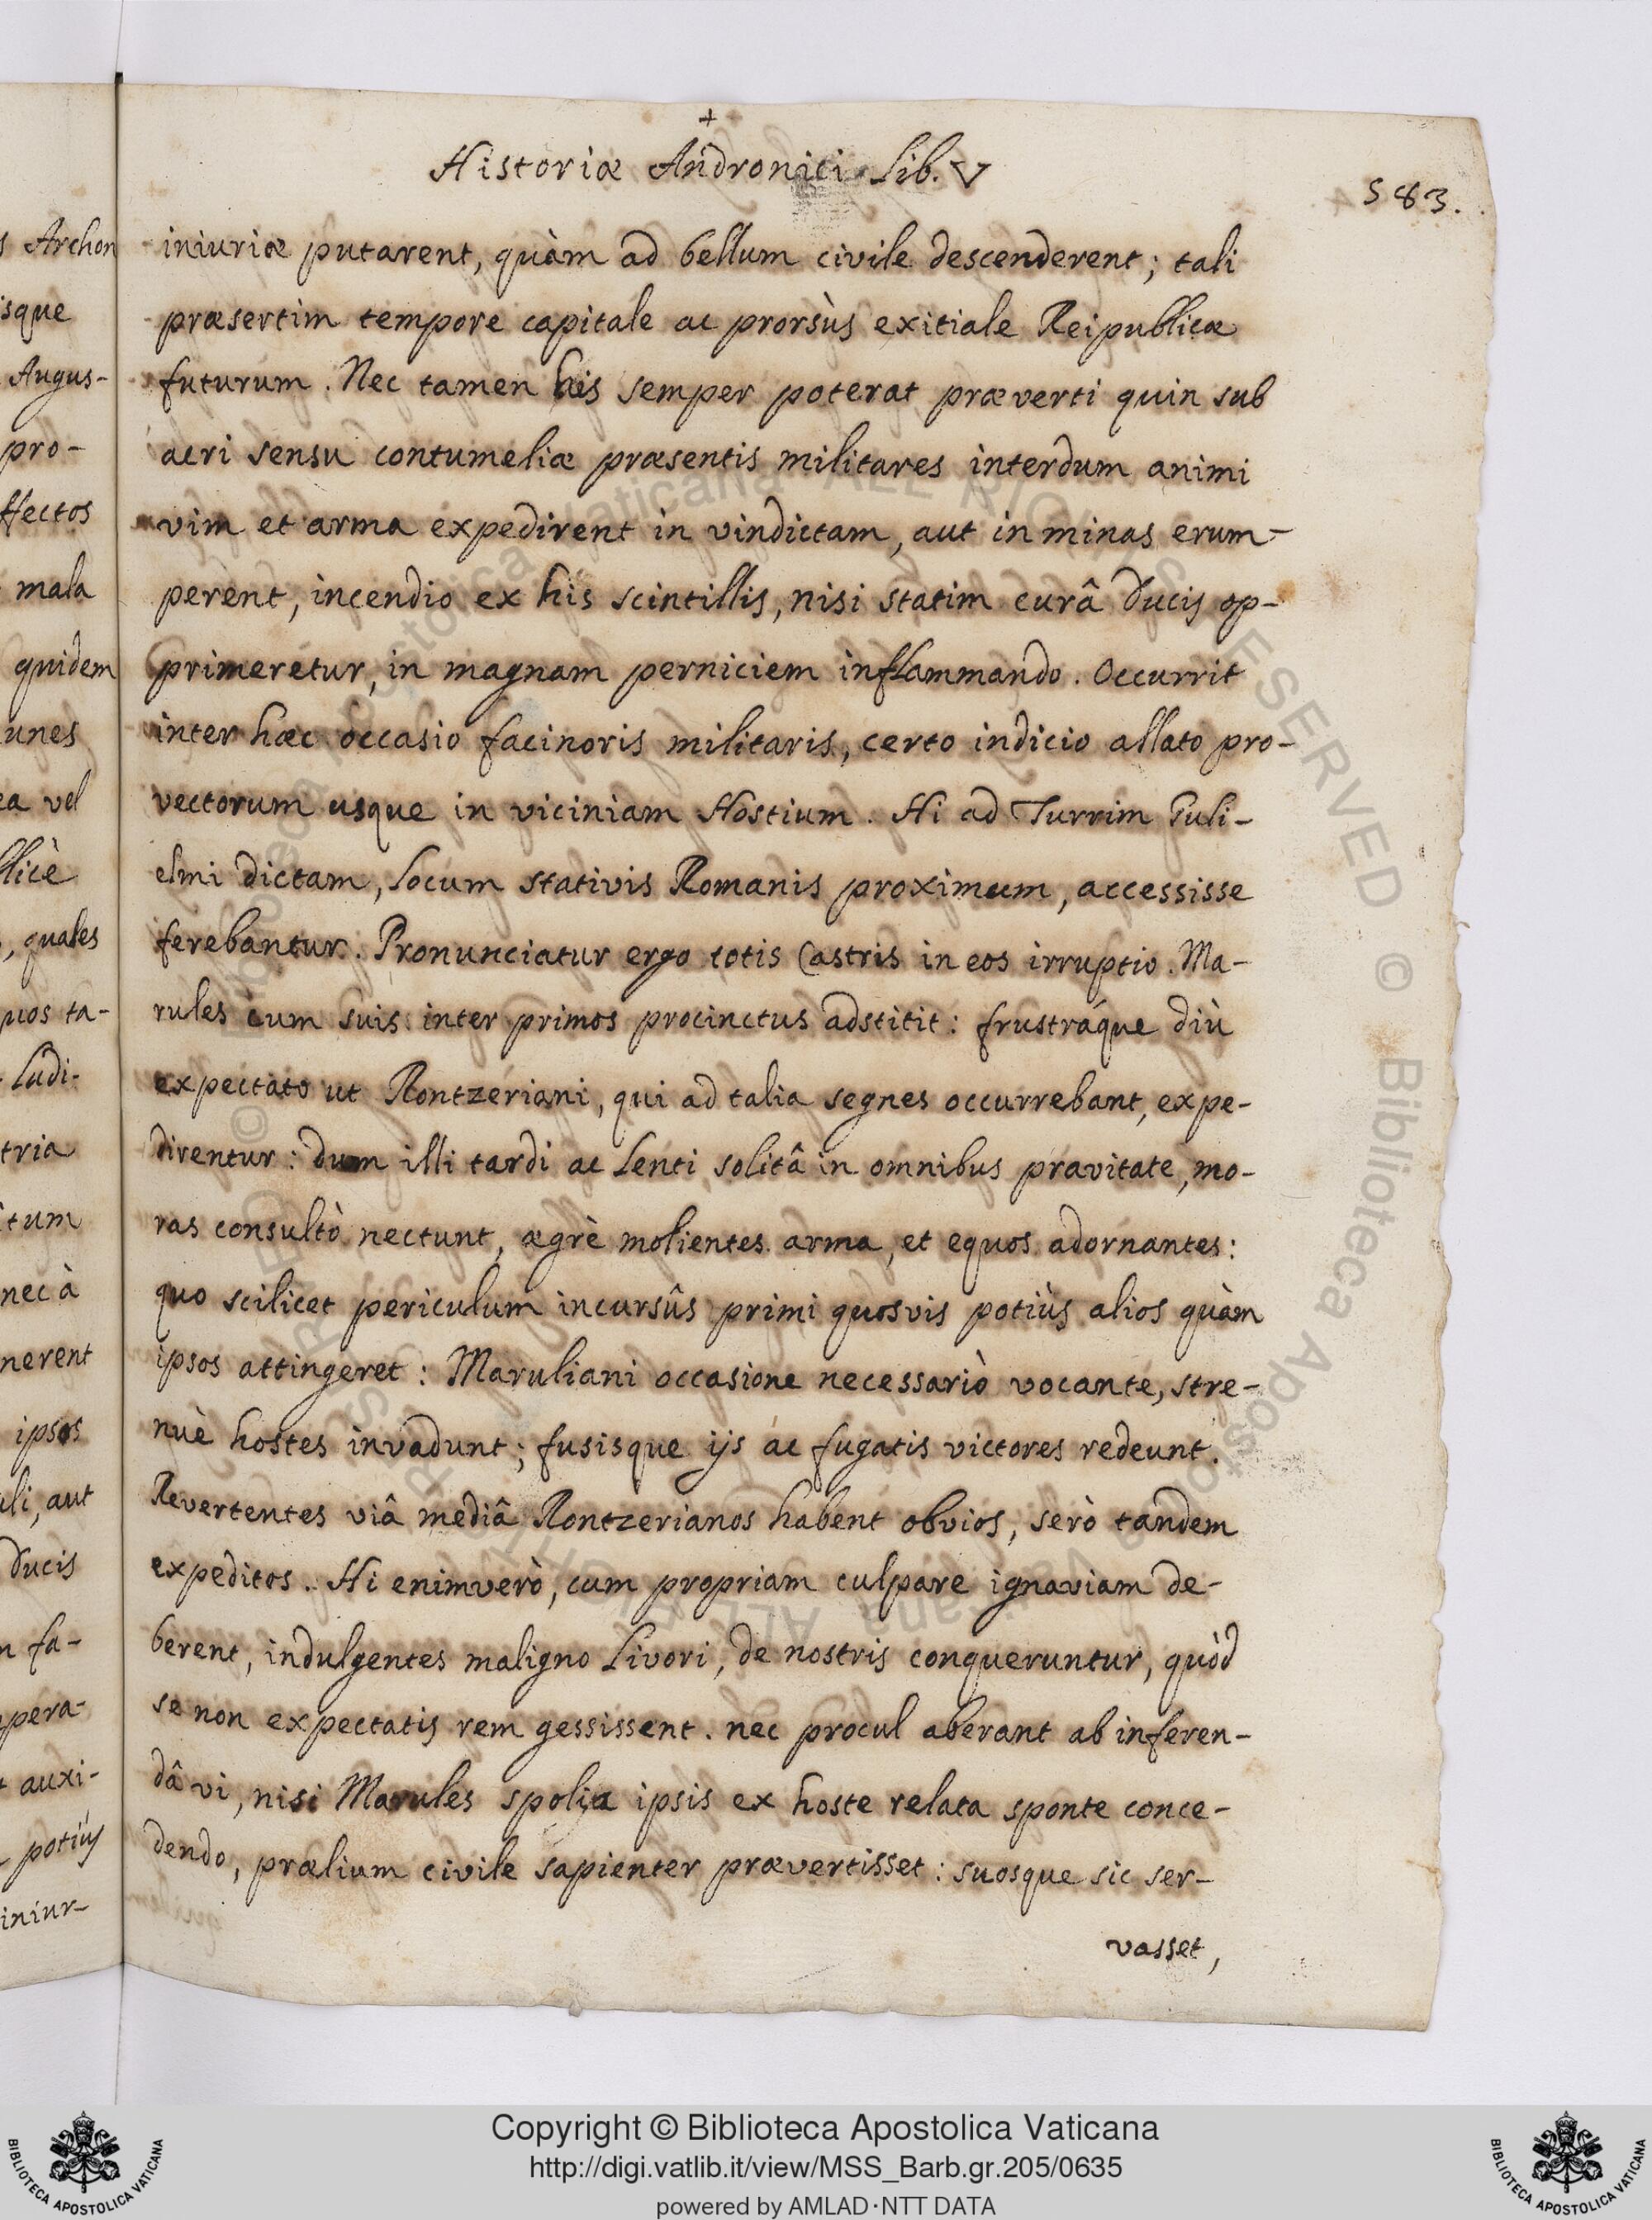 +
Historiæ Andronici Lib. V
583.
iniuriæ putarent, quàm ad bellum civile descenderent; tali
præsertim tempore capitale ac prorsùs exitiale Reipublicæ
futurum. Nec tamen his semper poterat præverti quin sub
acri sensu contumeliæ præsentis militares interdum animi
vim et arma expedirent in vindictam, aut in minas erum-
perent, incendio ex his scintillis, nisi statim curâ Ducis op-
primeretur, in magnam perniciem inflammando. Occurrit
inter hæc occasio facinoris militaris, certo indicio allato pro-
vectorum usque in viciniam Hostium. Hi ad Turrim Guli-
elmi dictam, locum stativis Romanis proximum, accessisse
ferebantur. Pronunciatur ergo totis Castris in eos irruptio. Ma-
rules cum suis inter primos procinctus adstitit: frustráque diù
expectato ut Rontzeriani, qui ad talia segnes occurrebant, expe-
direntur: dum illi tardi ac lenti solitâ in omnibus pravitate, mo-
ras consultò nectunt, ægrè molientes arma, et equos adornantes:
quo scilicet periculum incursûs primi quosvis potiùs alios quàm
ipsos attingeret: Maruliani occasione necessariò vocante, stre-
nuè hostes invadunt; fusisque ijs ac fugatis victores redeunt.
Revertentes viâ mediâ Rontzerianos habent obvios, serò tandem
expeditos. Hi enimverò, cum propriam culpare ignaviam de-
berent, indulgentes maligno livori, de nostris conqueruntur, quòd
se non expectatis rem gessissent. nec procul aberant ab inferen-
dâ vi, nisi Marules spolia ipsis ex hoste relata sponte conce-
dendo, prælium civile sapienter prævertisset: suosque sic ser-
vasset,
s Archon
isque
Augus-
pro-
ffectos
mala
quidem
unes
ea vel
llicè
, quales
uos ta-
Ludi-
tria
itum
nec à
nerent
ipsos
uli, aut
Ducis
n fa-
pera-
t auxi-
potiùs
iniur-
© Biblioteca Apostolica Vaticana ALL RIGHTS RESERVED
© Biblioteca Apostolica Vaticana ALL RIGHTS RESERVED
Copyright © Biblioteca Apostolica Vaticana
http://digi.vatlib.it/view/MSS_Barb.gr.205/0635
powered by AMLAD·NTT DATA
BIBLIOTECA APOSTOLICA VATICANA
BIBLIOTECA APOSTOLICA VATICANA